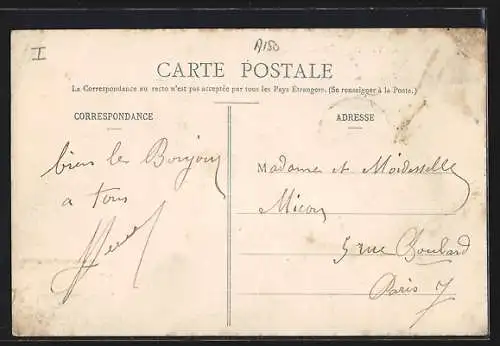 I
A150
CARTE POSTALE
La Correspondance au recto n'est pas acceptée par tous les Pays Étrangers. (Se renseigner à la Poste.)
CORRESPONDANCE
ADRESSE
bien le Bonjour
a tous
Madame et Moidesselle
5 rue
Paris 7